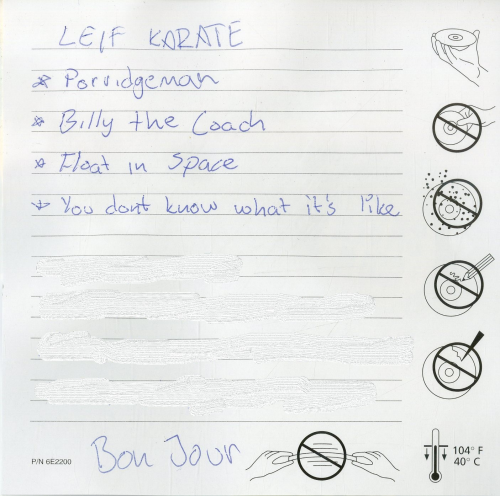 LEIF KARATE
* Porridgeman
* Billy the Coach
* Float in Space
* You dont know what it's like
Bon Jour
P/N 6E2200
104° F
40° C